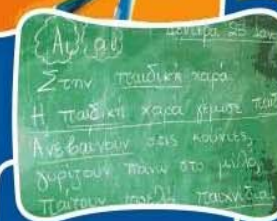 Αυ, αυ Δευτέρα 23 Ιαν
Στην παιδική χαρά.
Η παιδική χαρά γέμισε παιδ
Ανεβαίνουν στις κούνιες,
γυρίζουν πάνω στο μύλο,
παίζουν τρελά παιχνίδια